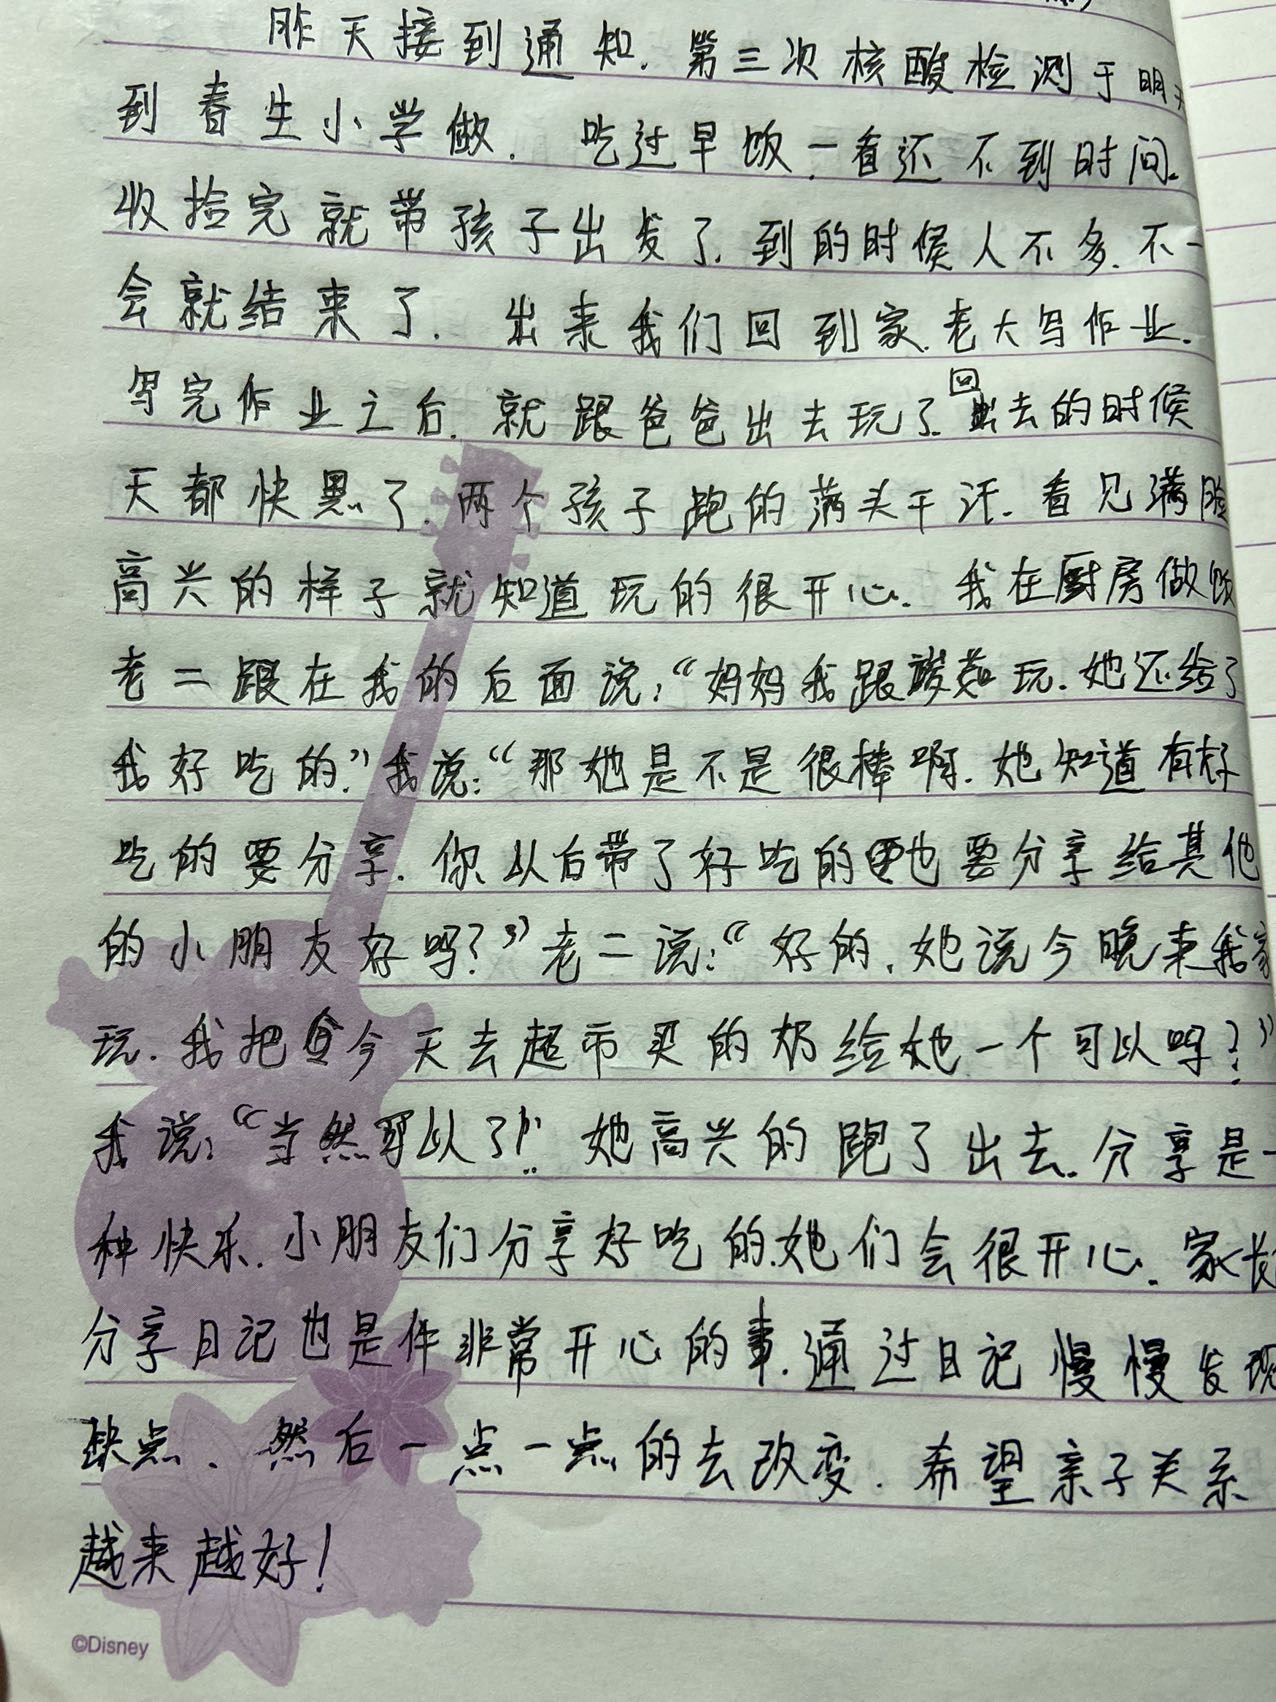 昨天接到通知.第三次核酸检测于明天
到春生小学做.吃过早饭一看还不到时间.
收捡完就带孩子出发了.到的时候人不多.不一
会就结束了.出来我们回到家.老大写作业.
写完作业之后.就跟爸爸出去玩了.回去的时候
天都快黑了.两个孩子跑的满头干汗.看见满脸
高兴的样子就知道玩的很开心.我在厨房做饭
老二跟在我的后面说:“妈妈我跟玩.她还给了
我好吃的.”我说:“那她是不是很棒啊.她知道有好
吃的要分享.你以后带了好吃的也要分享给其他
的小朋友好吗?”老二说:“好的.她说今晚来我家
玩.我把今天去超市买的奶给她一个可以吗?”
我说:“当然可以了!”她高兴的跑了出去.分享是一
种快乐.小朋友们分享好吃的.她们会很开心.家长
分享日记也是件非常开心的事.通过日记慢慢发现
缺点、然后一点一点的去改变.希望亲子关系
越来越好!
©Disney